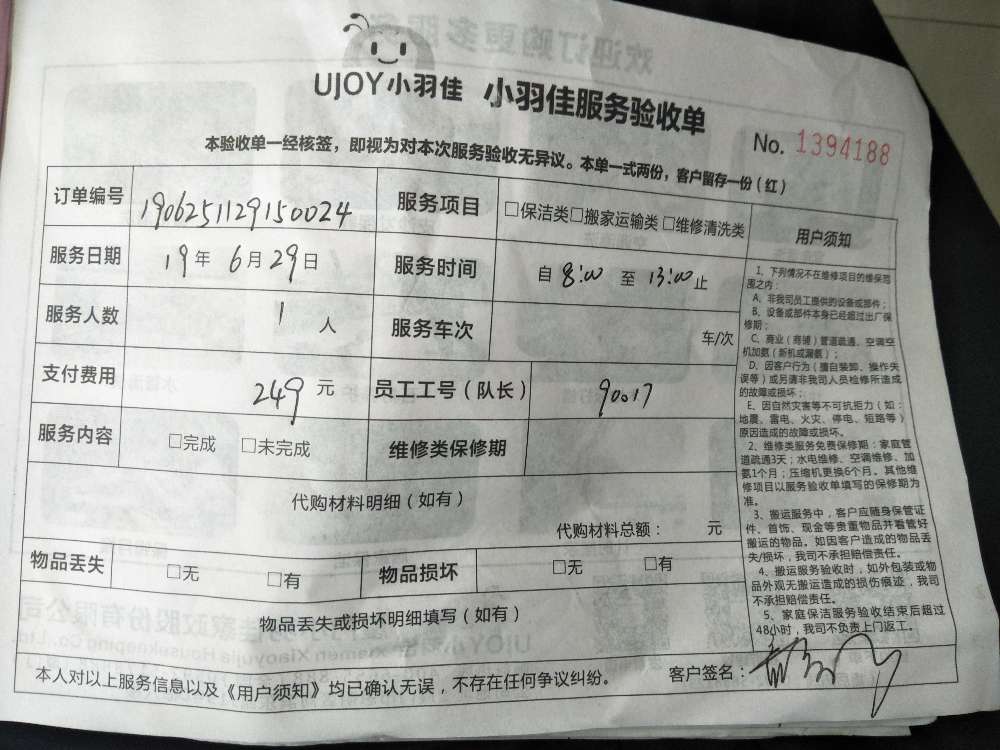 UJOY小羽佳 小羽佳服务验收单
No. 1394188
本验收单一经核签，即视为对本次服务验收无异议。本单一式两份，客户留存一份（红）
订单编号 1906251129150024 服务项目 □保洁类□搬家运输类 □维修清洗类
服务日期 19年 6月29日 服务时间 自 8:00 至 13:00 止
服务人数 1 人 服务车次 车/次
支付费用 249 元 员工工号（队长） 90017
服务内容 □完成 □未完成 维修类保修期
代购材料明细（如有）
代购材料总额： 元
物品丢失 □无 □有 物品损坏 □无 □有
物品丢失或损坏明细填写（如有）
本人对以上服务信息以及《用户须知》均已确认无误，不存在任何争议纠纷。 客户签名：
用户须知
1、下列情况不在维修项目的维保范
围之内：
A、非我司员工提供的设备或部件；
B、设备或部件本身已经超过出厂保
修期；
C、商业（商铺）管道疏通、空调空
机加氨（新机或漏氨）；
D、因客户行为（擅自装卸、操作失
误等）或另请非我司人员检修所造成
的故障或损坏；
E、因自然灾害等不可抗拒力（如：
地震、雷电、火灾、停电、短路等）
原因造成的故障或损坏。
2、维修类服务免费保修期：家庭管
道疏通3天；水电维修、空调维修、加
氨1个月；压缩机更换6个月。其他维
修项目以服务验收单填写的保修期为
准。
3、搬运服务中，客户应随身保管证
件、首饰、现金等贵重物品并看管好
搬运的物品。如因客户造成的物品丢
失/损坏，我司不承担赔偿责任。
4、搬运服务验收时，如外包装或物
品外观无搬运造成的损伤痕迹，我司
不承担赔偿责任。
5、家庭保洁服务验收结束后超过
48小时，我司不负责上门返工。